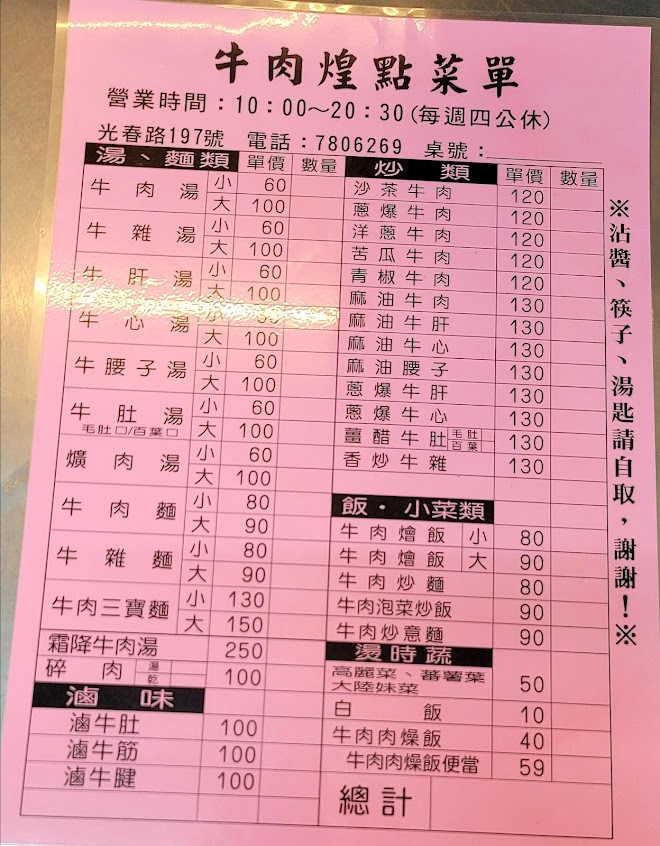 牛肉煌點菜單
營業時間：10：00～20：30(每週四公休)
光春路197號 電話：7806269 桌號：
湯、麵類 單價 數量
牛肉湯 小 60
大 100
牛雜湯 小 60
大 100
牛肝湯 小 60
大 100
牛心湯 小
大 100
牛腰子湯 小 60
大 100
牛肚湯 小 60
毛肚口/百葉口 大 100
爌肉湯 小 60
大 100
牛肉麵 小 80
大 90
牛雜麵 小 80
大 90
牛肉三寶麵 小 130
大 150
霜降牛肉湯 250
碎肉 湯 乾 100
滷味
滷牛肚 100
滷牛筋 100
滷牛腱 100
炒類 單價 數量
沙茶牛肉 120
蔥爆牛肉 120
洋蔥牛肉 120
苦瓜牛肉 120
青椒牛肉 120
麻油牛肉 130
麻油牛肝 130
麻油牛心 130
麻油腰子 130
蔥爆牛肝 130
蔥爆牛心 130
薑醋牛肚 毛肚 百葉 130
香炒牛雜 130
飯・小菜類
牛肉燴飯 小 80
牛肉燴飯 大 90
牛肉炒麵 80
牛肉泡菜炒飯 90
牛肉炒意麵 90
燙時蔬
高麗菜、蕃薯葉
大陸妹菜 50
白飯 10
牛肉肉燥飯 40
牛肉肉燥飯便當 59
總計
※沾醬、筷子、湯匙請自取，謝謝！※